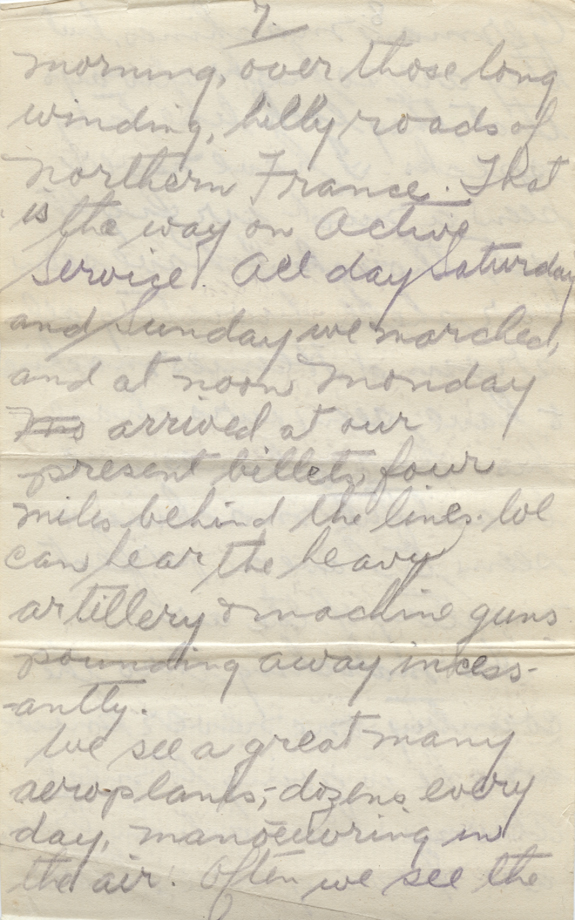 7.
morning, over those long
winding, hilly roads of
Northern France. That
is the way on Active
Service. All day Saturday
and Sunday we marched,
and at noon Monday
arrived at our
present billets, four
miles behind the lines. We
can hear the heavy
artillery & machine guns
pounding away incess-
-antly.
We see a great many
aeroplanes,- dozens every
day, manoeuvring in
the air. Often we see the